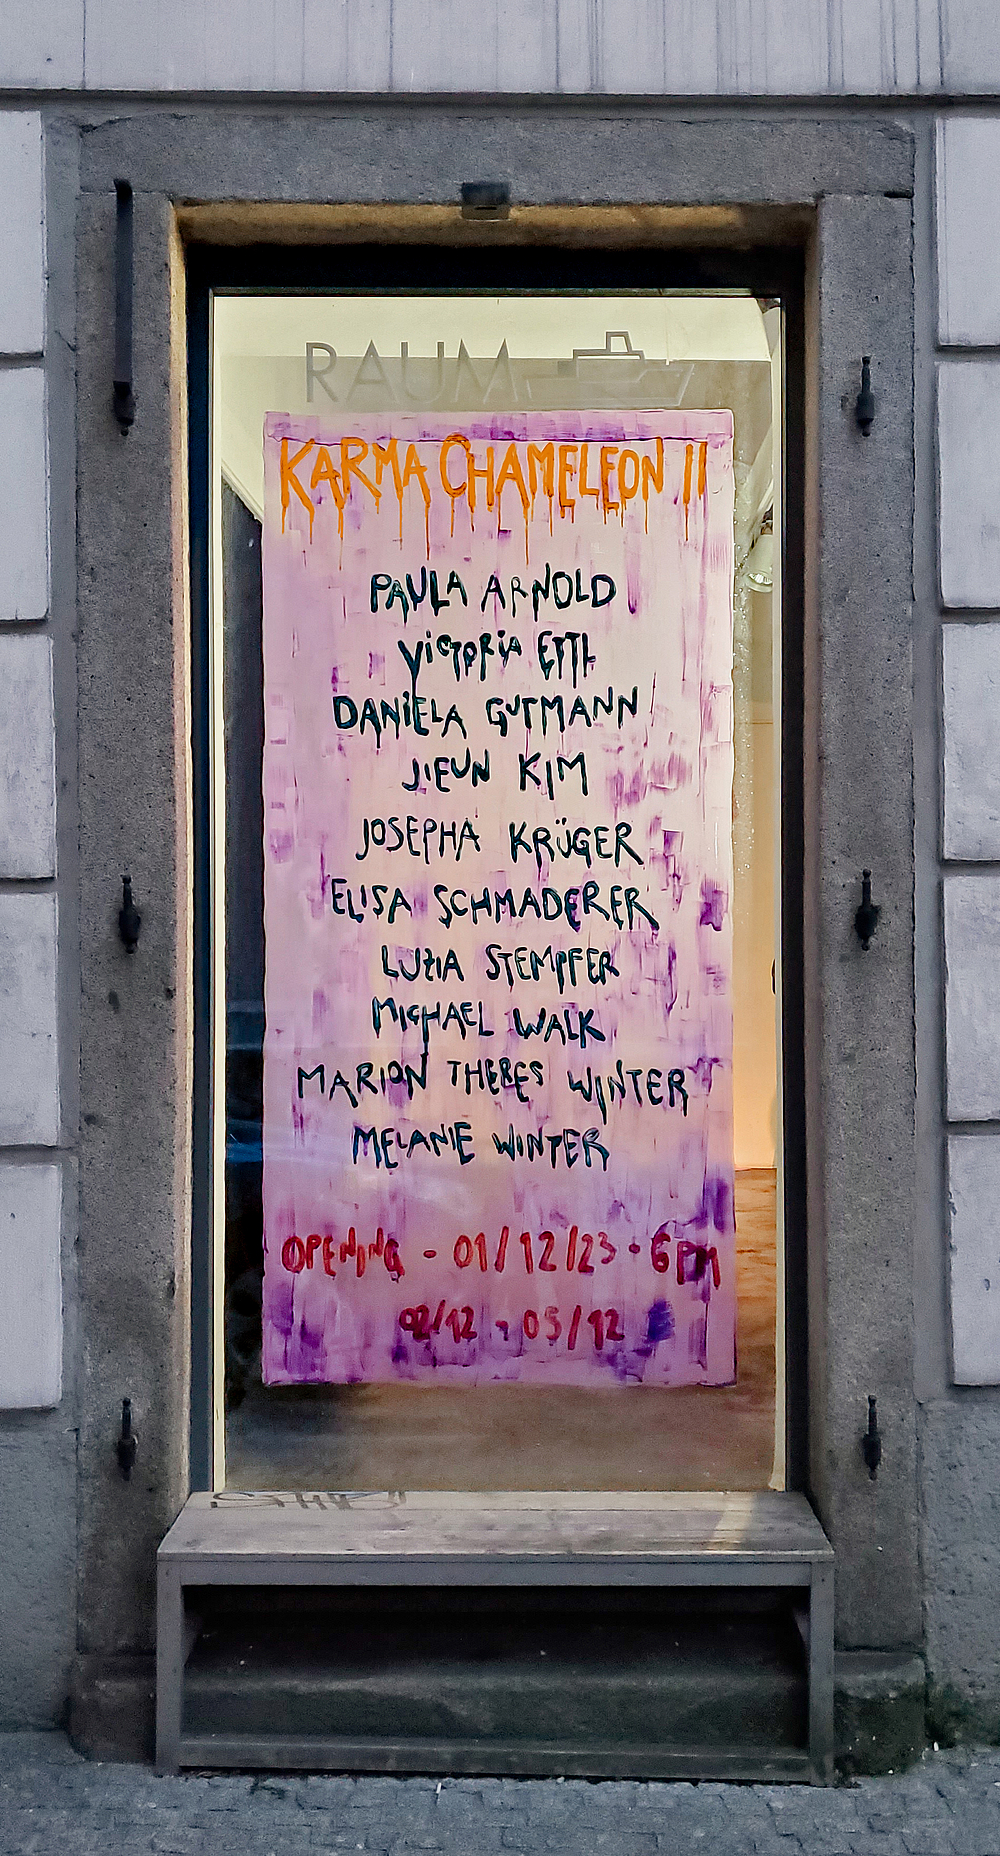 RAUM
KARMA CHAMELEON II
PAULA ARNOLD
VICTORIA ETTL
DANIELA GUTMANN
JIEUN KIM
JOSEPHA KRÜGER
ELISA SCHMADERER
LUZIA STEMPFER
MICHAEL WALK
MARION THERES WINTER
MELANIE WINTER
OPENING - 01/12/23 - 6PM
02/12 - 05/12